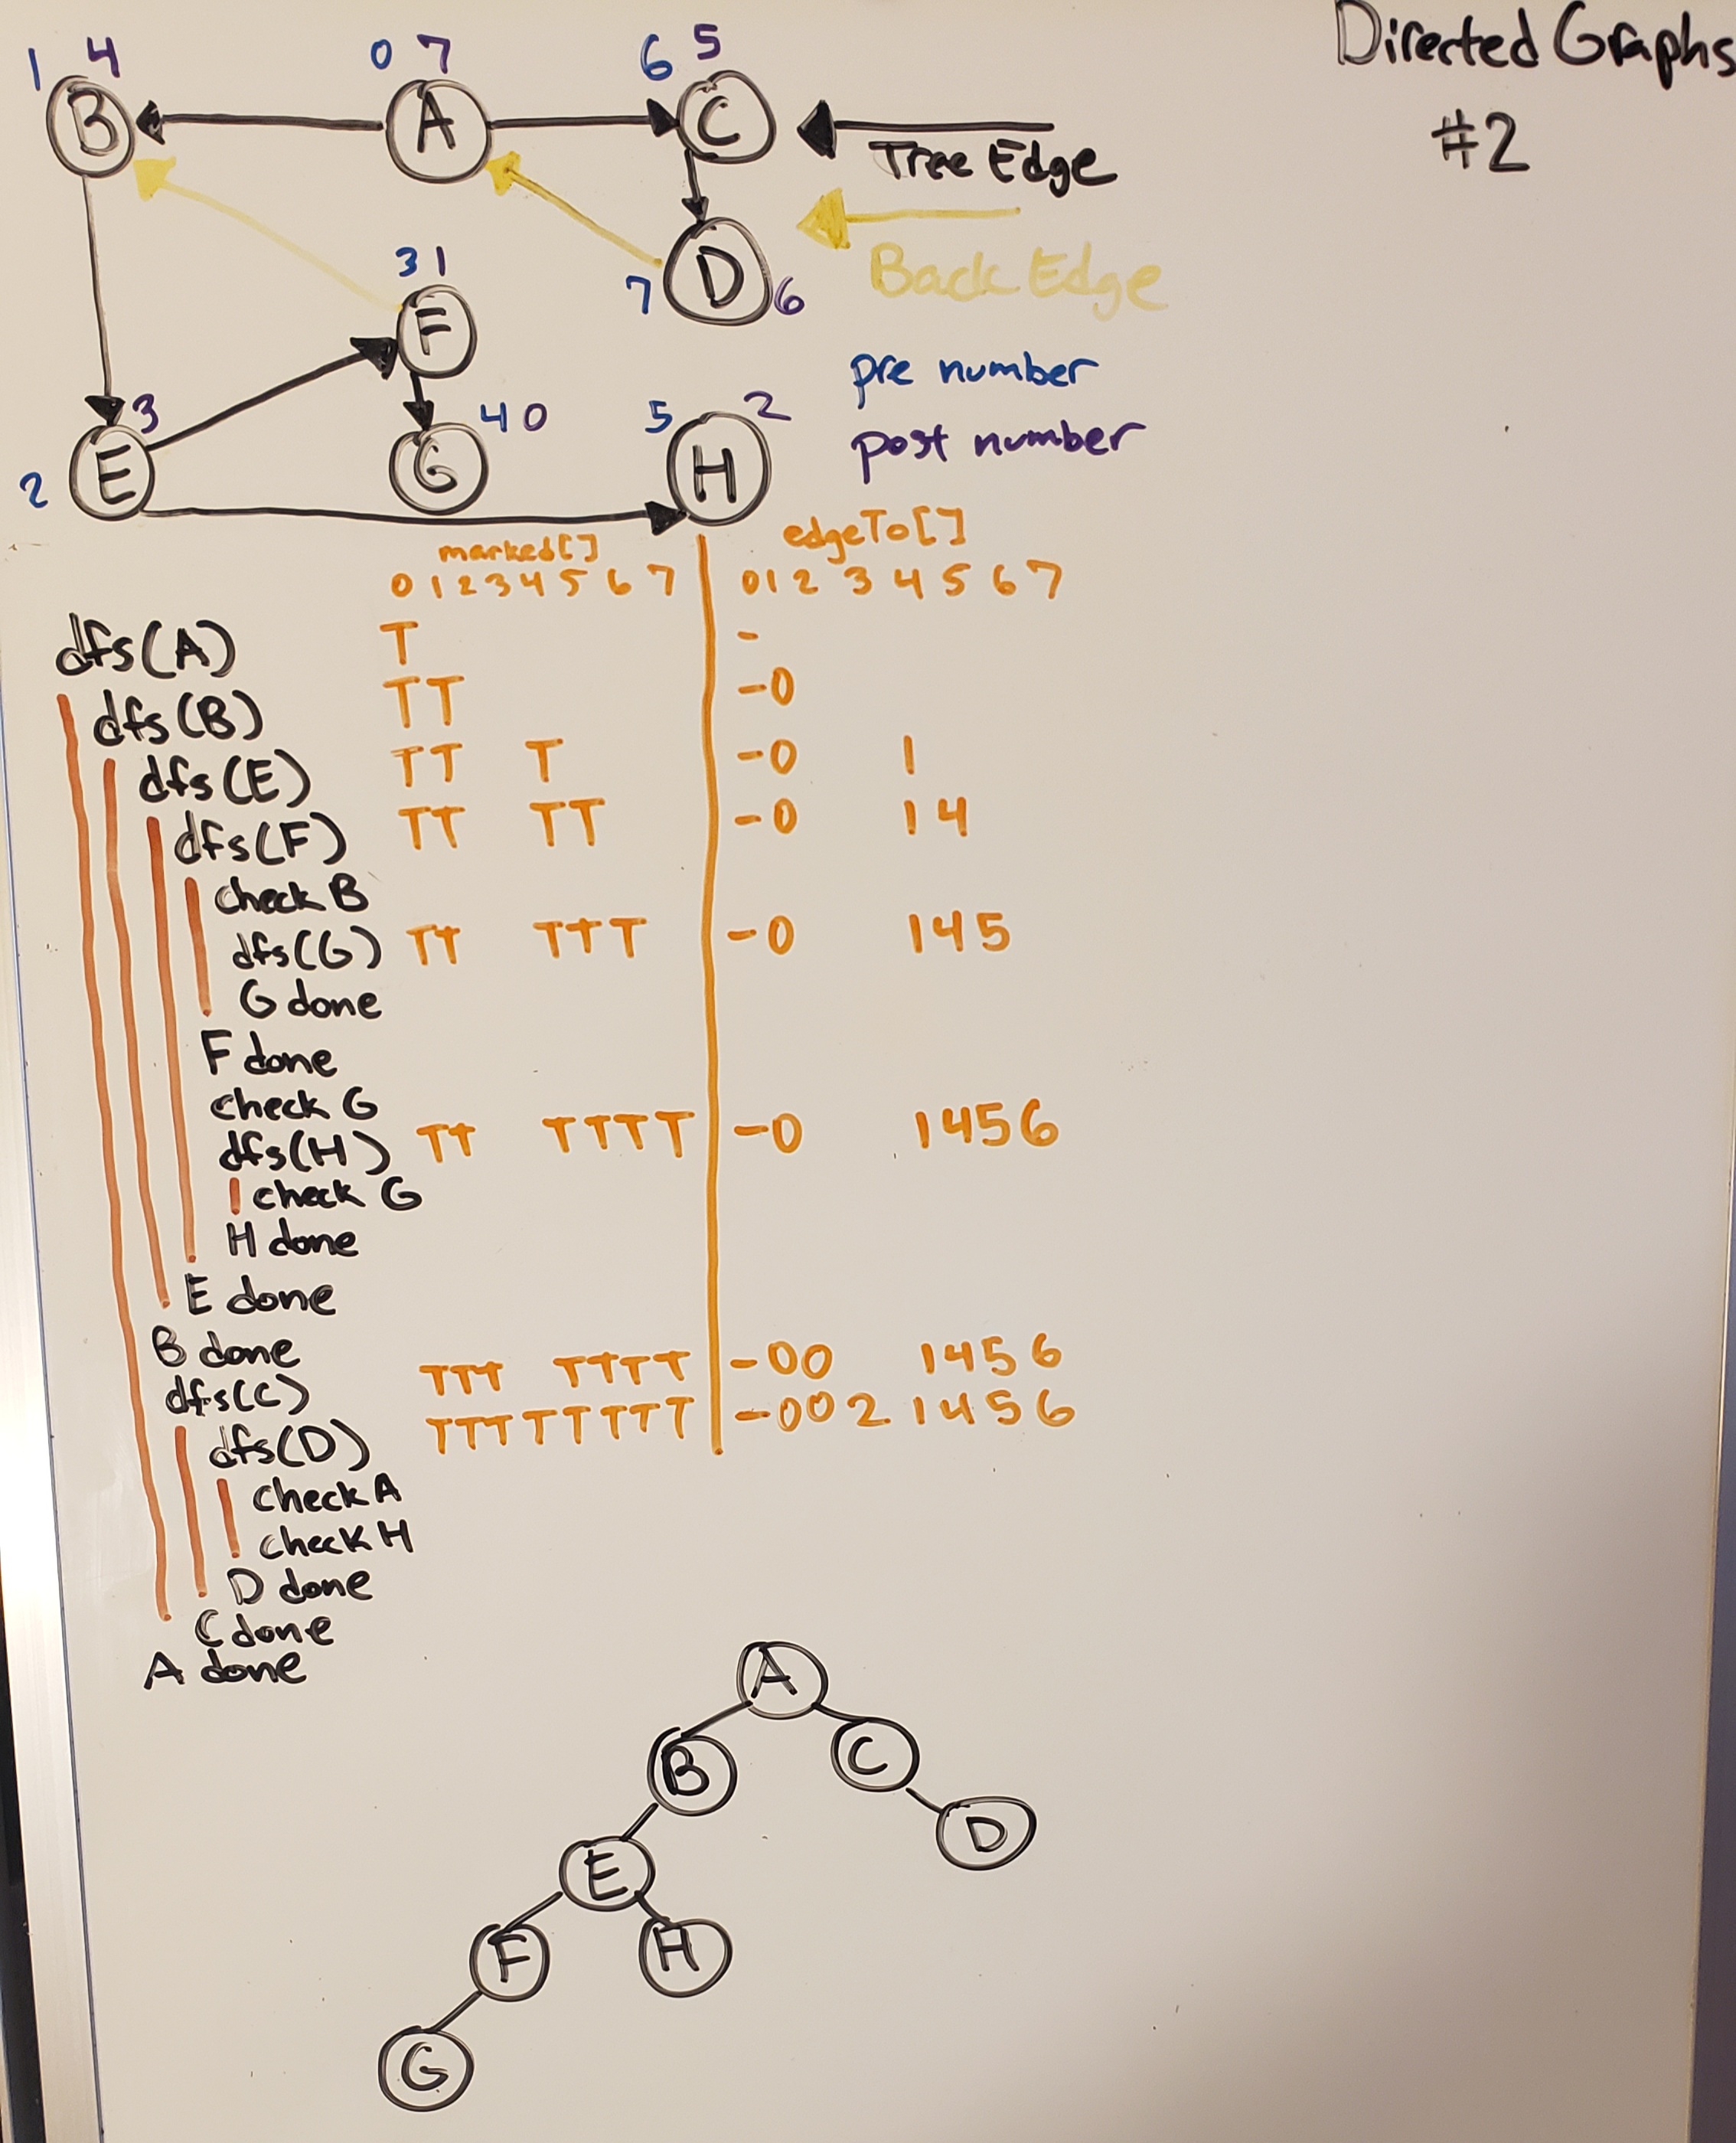 Directed Graphs
#2
1 4 0 7 6 5
B A C
Tree Edge
3 1
F
7 D 6
Back Edge
pre number
post number
3 4 0 5 2
2 E G H
marked[] edgeTo[]
0 1 2 3 4 5 6 7 0 1 2 3 4 5 6 7
dfs(A) T -
dfs(B) T T - 0
dfs(E) T T T - 0 1
dfs(F) T T T T - 0 1 4
check B
dfs(G) T T T T T - 0 1 4 5
G done
F done
check G
dfs(H) T T T T T T - 0 1 4 5 6
check G
H done
E done
B done
dfs(C) T T T T T T T - 0 0 1 4 5 6
dfs(D) T T T T T T T T - 0 0 2 1 4 5 6
check A
check H
D done
C done
A done
A
B C
D
E
F H
G